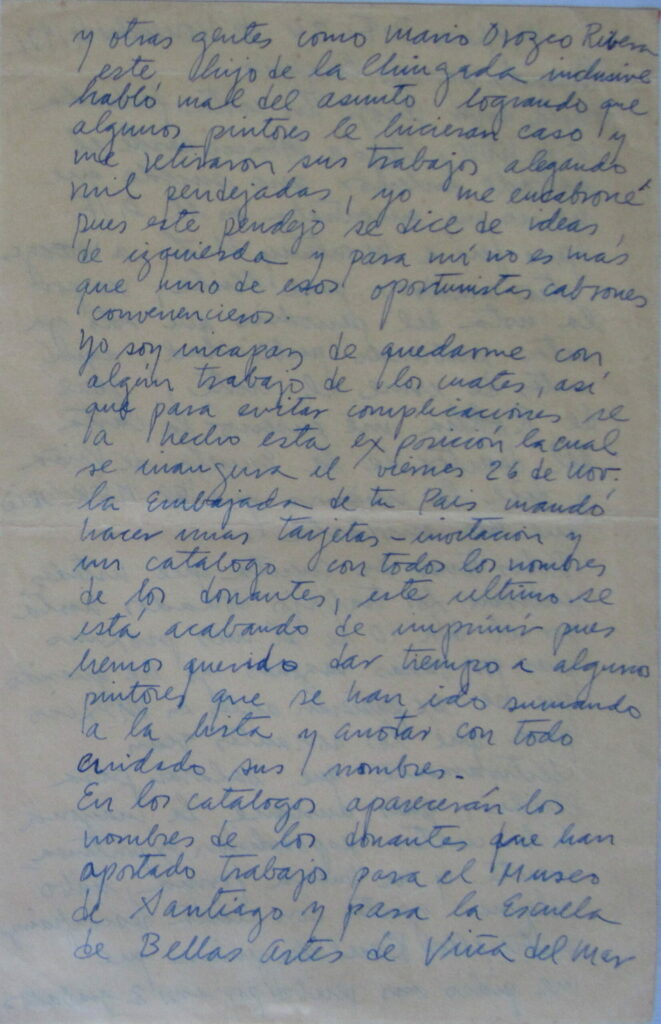 y otras gentes como Mario Orozco Rivera
este hijo de la Chingada inclusive
habló mal del asunto logrando que
algunos pintores le hicieran caso y
me retiraron sus trabajos alegando
mil pendejadas, yo me encabroné
pues este pendejo se dice de ideas
de izquierda y para mí no es más
que uno de esos oportunistas cabrones
convenencieros.
Yo soy incapaz de quedarme con
algún trabajo de los cuates, así
que para evitar complicaciones se
a hecho esta exposición la cual
se inaugura el viernes 26 de Nov.
la Embajada de tu Pais mandó
hacer unas tarjetas-invitación y
un catalogo con todos los nombres
de los donantes, este ultimo se
está acabando de imprimir pues
hemos querido dar tiempo a algunos
pintores que se han ido sumando
a la lista y anotar con todo
cuidado sus nombres.-
En los catálogos aparecerán los
nombres de los donantes que han
aportado trabajos para el Museo
de Santiago y para la Escuela
de Bellas Artes de Viña del Mar